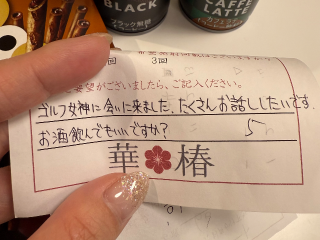 BLACK
ブラック無糖
CAFFE
LATTE
回 3回
ご要望がございましたら、ご記入ください。
ゴルフ女神に会いに来ました。たくさんお話ししたいです。
お酒飲んでもいいですか?
華椿